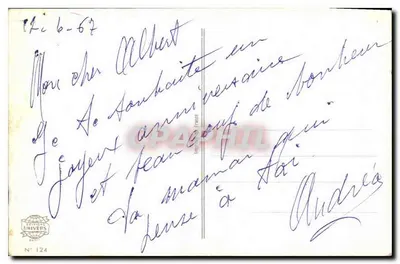 12-6-67
Mon cher Albert
Je te souhaite un
joyeux anniversaire
et beaucoup de bonheur
ta maman qui
pense à toi
Andréa
CPAPHIL
UNIVERS
N° 124